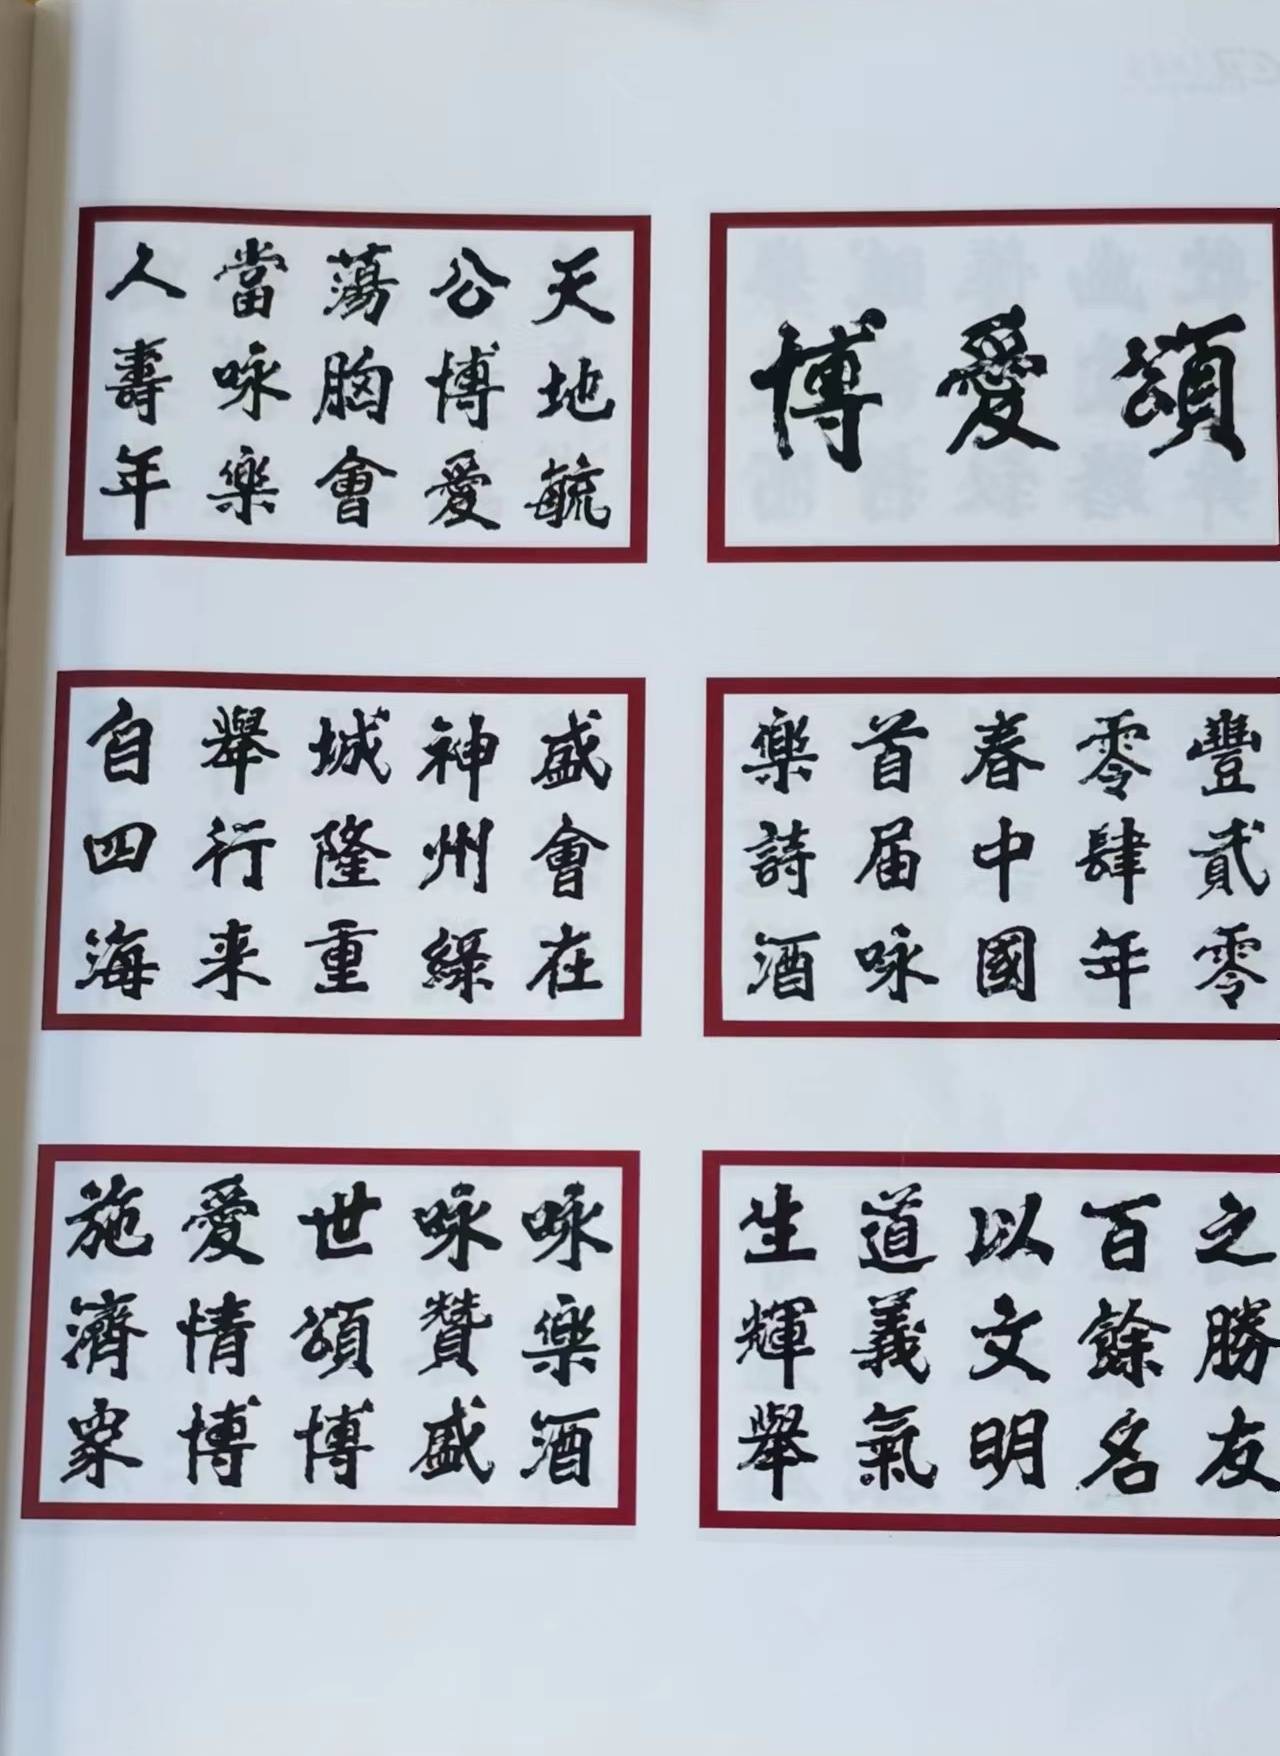 博愛頌
天地毓
公博愛
蕩胸會
當咏樂
人壽年
豐貳零
零肆年
春中國
首届咏
樂詩酒
盛會在
神州緑
城隆重
舉行来
自四海
之勝友
百餘名
以文明
道義氣
生輝舉
咏樂酒
咏贊盛
世頌博
愛情博
施濟眾